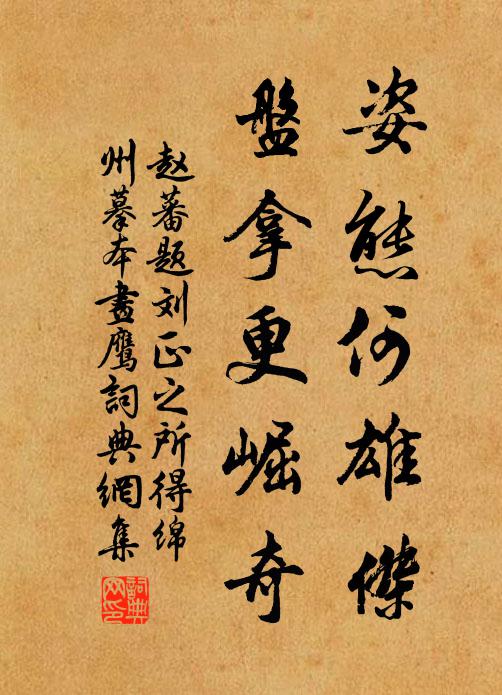 姿態何雄傑
盤拿更崛奇
赵蕃题刘正之所得绵
州摹本畫鹰詞典網集
詞典网印